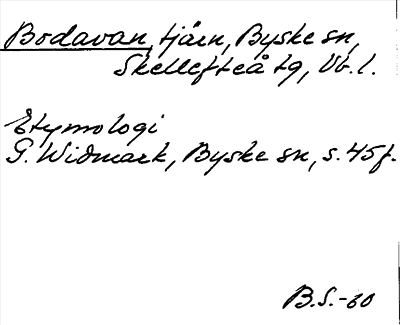 Bodavan, tjärn, Byske sn,
Skellefteå tg, Vb. l.
Etymologi
G. Widmark, Byske sn, s. 45 f.
B.S.-60